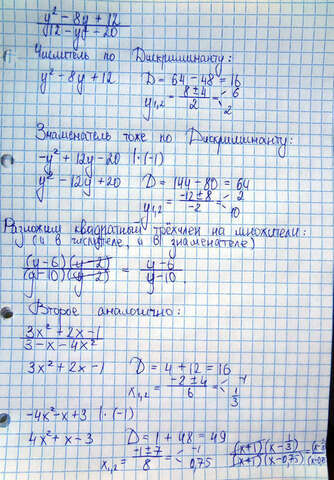 y² - 8y + 12
12 - y² - 20
Числитель по Дискриминанту:
y² - 8y + 12 D = 64 - 48 = 16
y₁,₂ = 8±4 / 2 = 6
2
Знаменатель тоже по Дискриминанту:
-y² + 12y - 20 | · (-1)
y² - 12y + 20 D = 144 - 80 = 64
y₁,₂ = -12±8 / -2 = 2
10
Разложим квадратный трёхчлен на множители:
(и в числителе, и в знаменателе)
(y-6)(y-2) / (y-10)(y-2) = y-6 / y-10
Второе аналогично:
3x² + 2x - 1
3 - x - 4x²
3x² + 2x - 1 D = 4 + 12 = 16
x₁,₂ = -2±4 / 6 = -1
1/3
-4x² - x + 3 | · (-1)
4x² + x - 3 D = 1 + 48 = 49
x₁,₂ = -1±7 / 8 = -1
0,75
(x+1)(x-1/3) / (x+1)(x-0,75) =